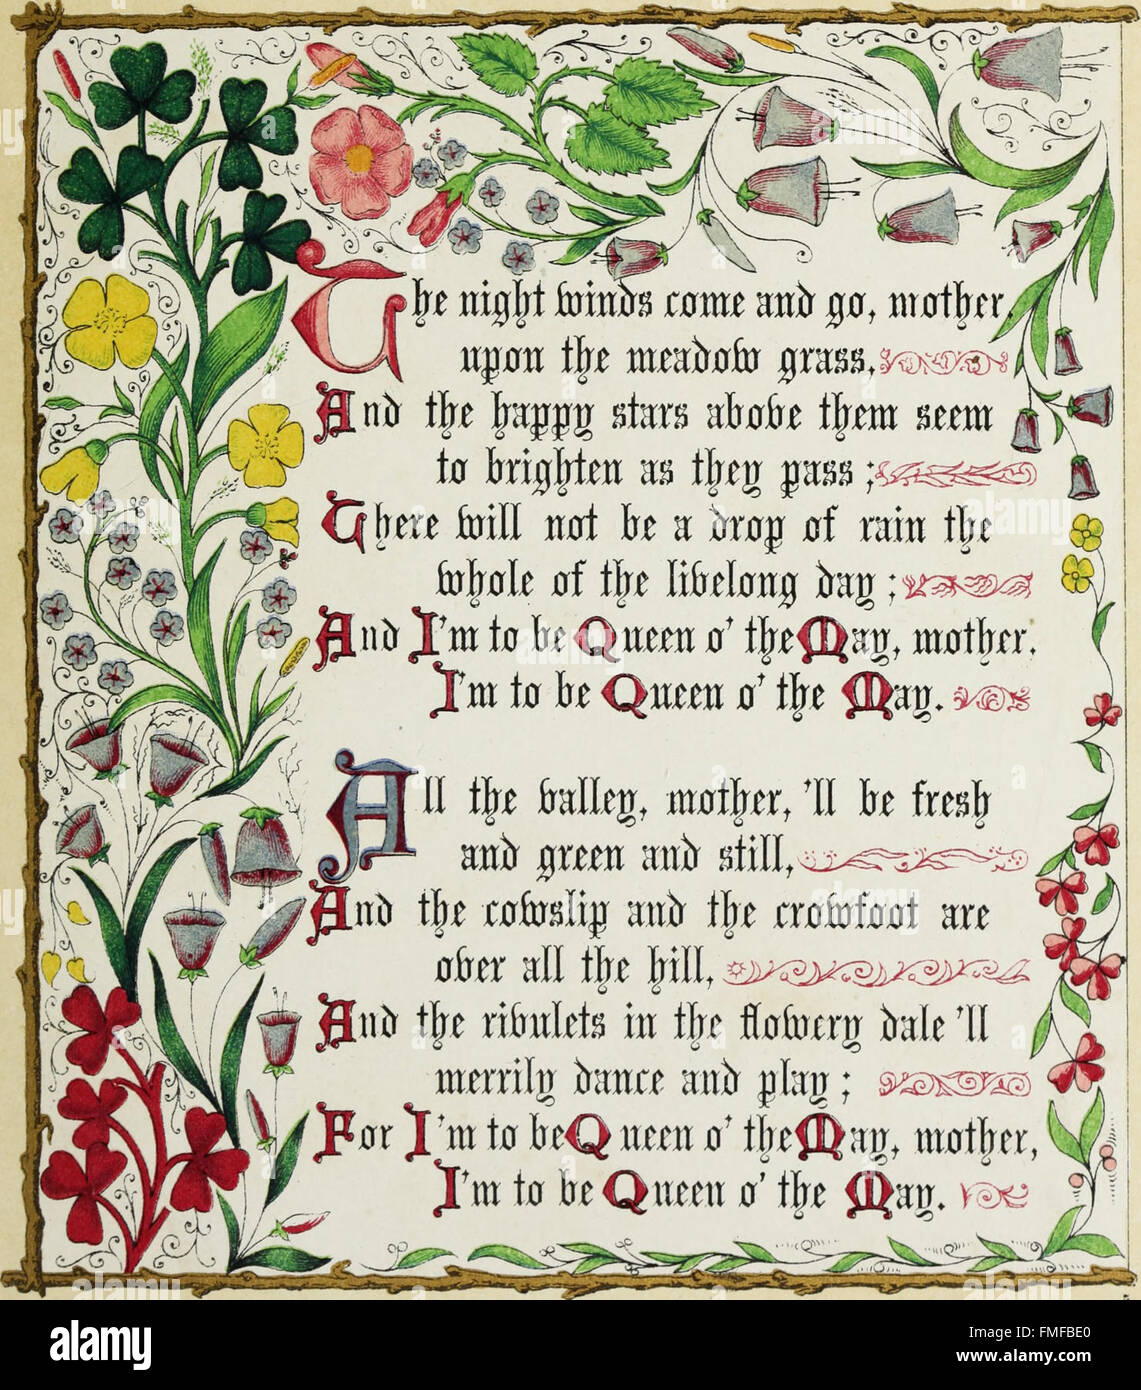 The night winds come and go, mother,
upon the meadow grass,
And the happy stars above them seem
to brighten as they pass;
There will not be a drop of rain the
whole of the livelong day;
And I'm to be Queen o' the May, mother,
I'm to be Queen o' the May.
All the valley, mother, 'll be fresh
and green and still,
And the cowslip and the crowfoot are
over all the hill,
And the rivulets in the flowery dale 'll
merrily dance and play;
For I'm to be Queen o' the May, mother,
I'm to be Queen o' the May.
alamy
Image ID: FMFBE0
www.alamy.com